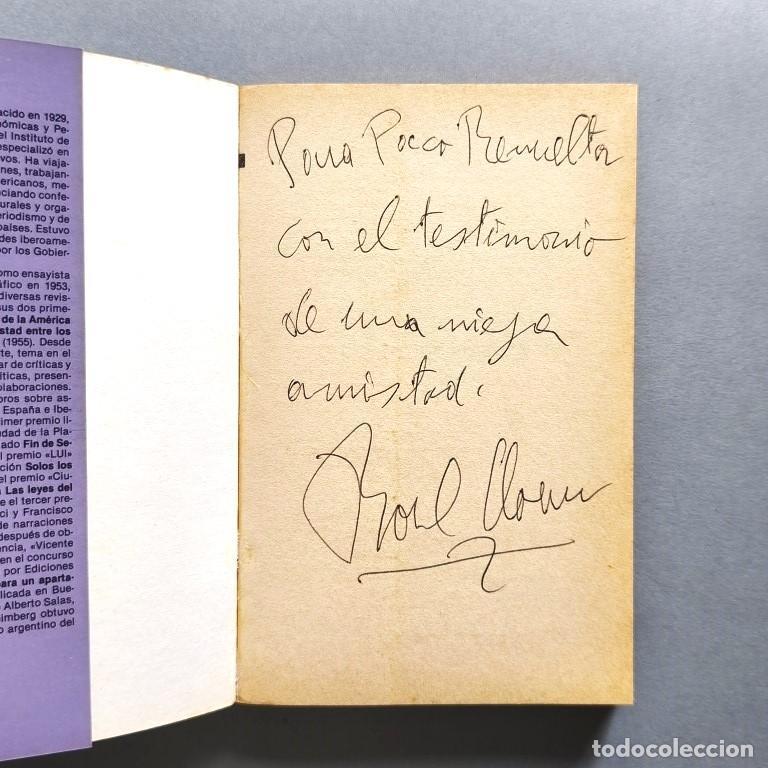 acido en 1929,
nómicas y Pe-
el Instituto de
especializó en
vos. Ha viaja-
nes, trabajan-
ericanos, me-
nciando confe-
urales y orga-
eriodismo y de
países. Estuvo
des iberoame-
por los Gobier-
omo ensayista
áfico en 1953,
diversas revis-
sus dos prime-
de la América
stad entre los
(1955). Desde
te, tema en el
ar de críticas y
íticas, presen-
olaboraciones.
bros sobre as-
España e Ibe-
rimer premio li-
dad de la Pla-
ado Fin de Se-
l premio «LUI»
ción Solos los
el premio «Ciu-
a Las leyes del
e el tercer pre-
ci y Francisco
de narraciones
después de ob-
encia, «Vicente
en el concurso
por Ediciones
para un aparta-
licada en Bue-
o Alberto Salas,
imberg obtuvo
o argentino del
Para Paco Revuelta
con el testimonio
de una vieja
amistad.
todocoleccion
todocoleccion.net